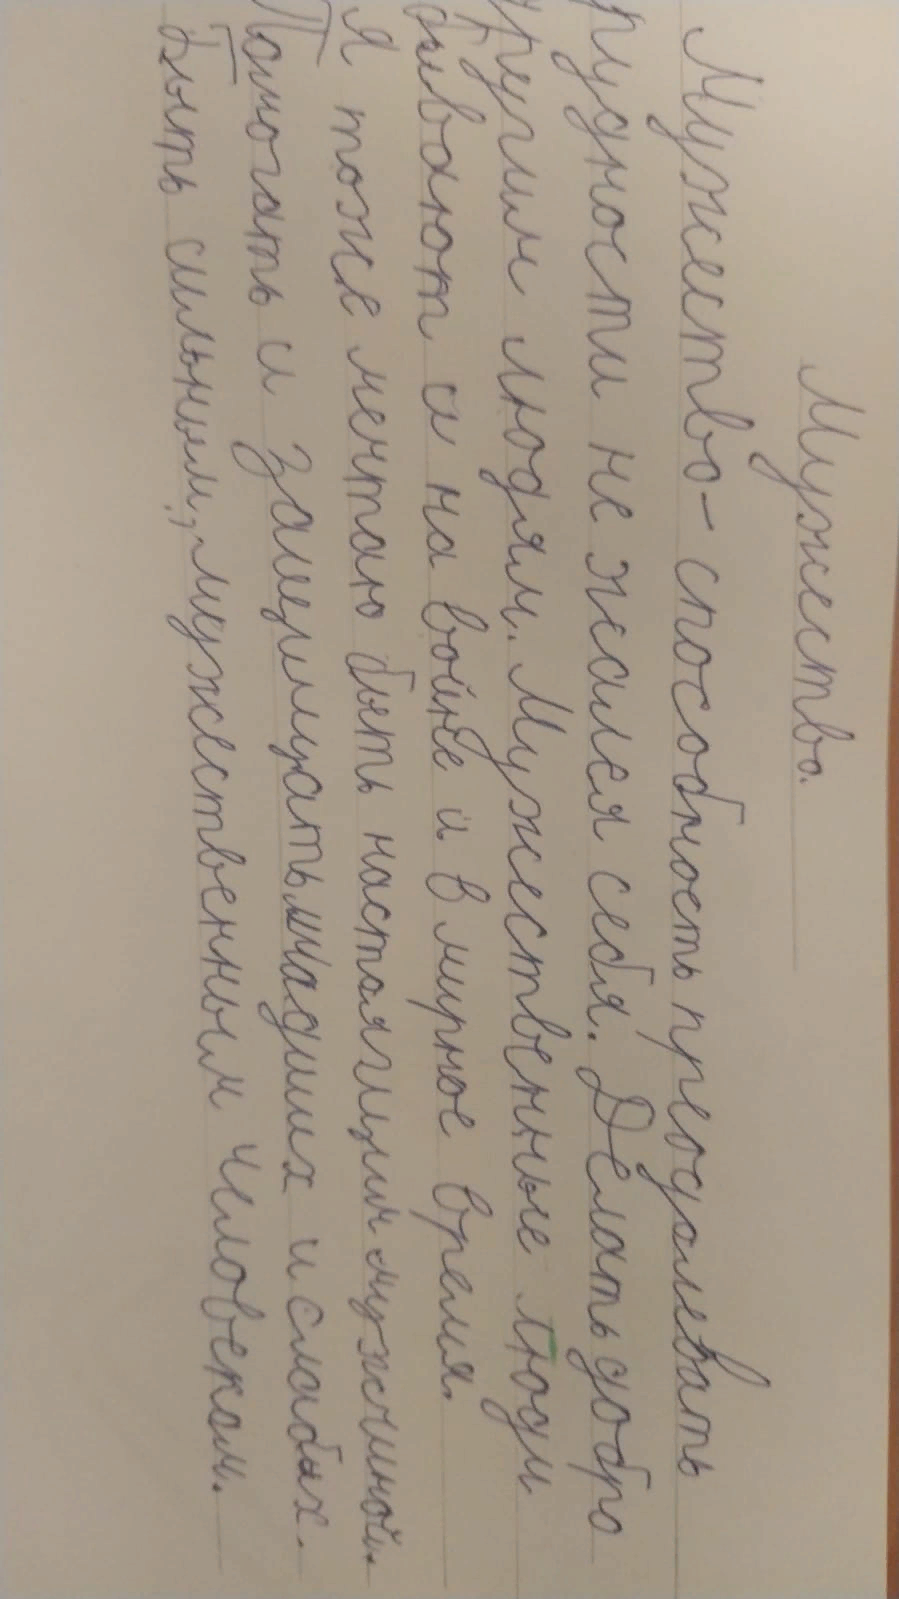 Мужество.
Мужество - способность преодолевать
трудности не жалея себя. Делать добро
другим людям. Мужественные люди
бывают и на войне и в мирное время.
Я тоже мечтаю быть настоящим мужчиной.
Помогать и защищать младших и слабых.
Быть сильным, мужественным человеком.